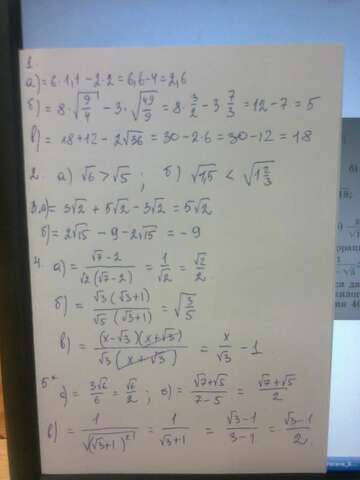 1.
а) = 6·1,1 - 2·2 = 6,6 - 4 = 2,6
б) = 8·√(9/4) - 3·√(49/9) = 8·3/2 - 3·7/3 = 12 - 7 = 5
в) = 18 + 12 - 2√36 = 30 - 2·6 = 30 - 12 = 18
2. а) √6 > √5 ; б) √1,5 < √(1 2/3)
3. а) = 3√2 + 5√2 - 3√2 = 5√2
б) = 2√15 - 9 - 2√15 = -9
4. а) = (√7 - 2)/(√2(√7 - 2)) = 1/√2 = √2/2.
б) = (√3(√3+1))/(√5(√3+1)) = √(3/5)
в) = ((x-√3)(x+√3))/(√3(x+√3)) = x/√3 - 1
5* а) = 3√6/6 = √6/2 ; б) = (√7+√5)/(7-5) = (√7+√5)/2
в) = 1/√((√3+1)²) = 1/(√3+1) = (√3-1)/(3-1) = (√3-1)/2.